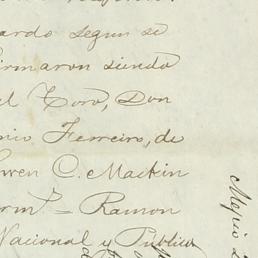 ardo segun se
irmaron siendo
el Toro, Don
nio Ferreiro, de
wen C. Mackin
erm.= Ramon
Nacional y Publico